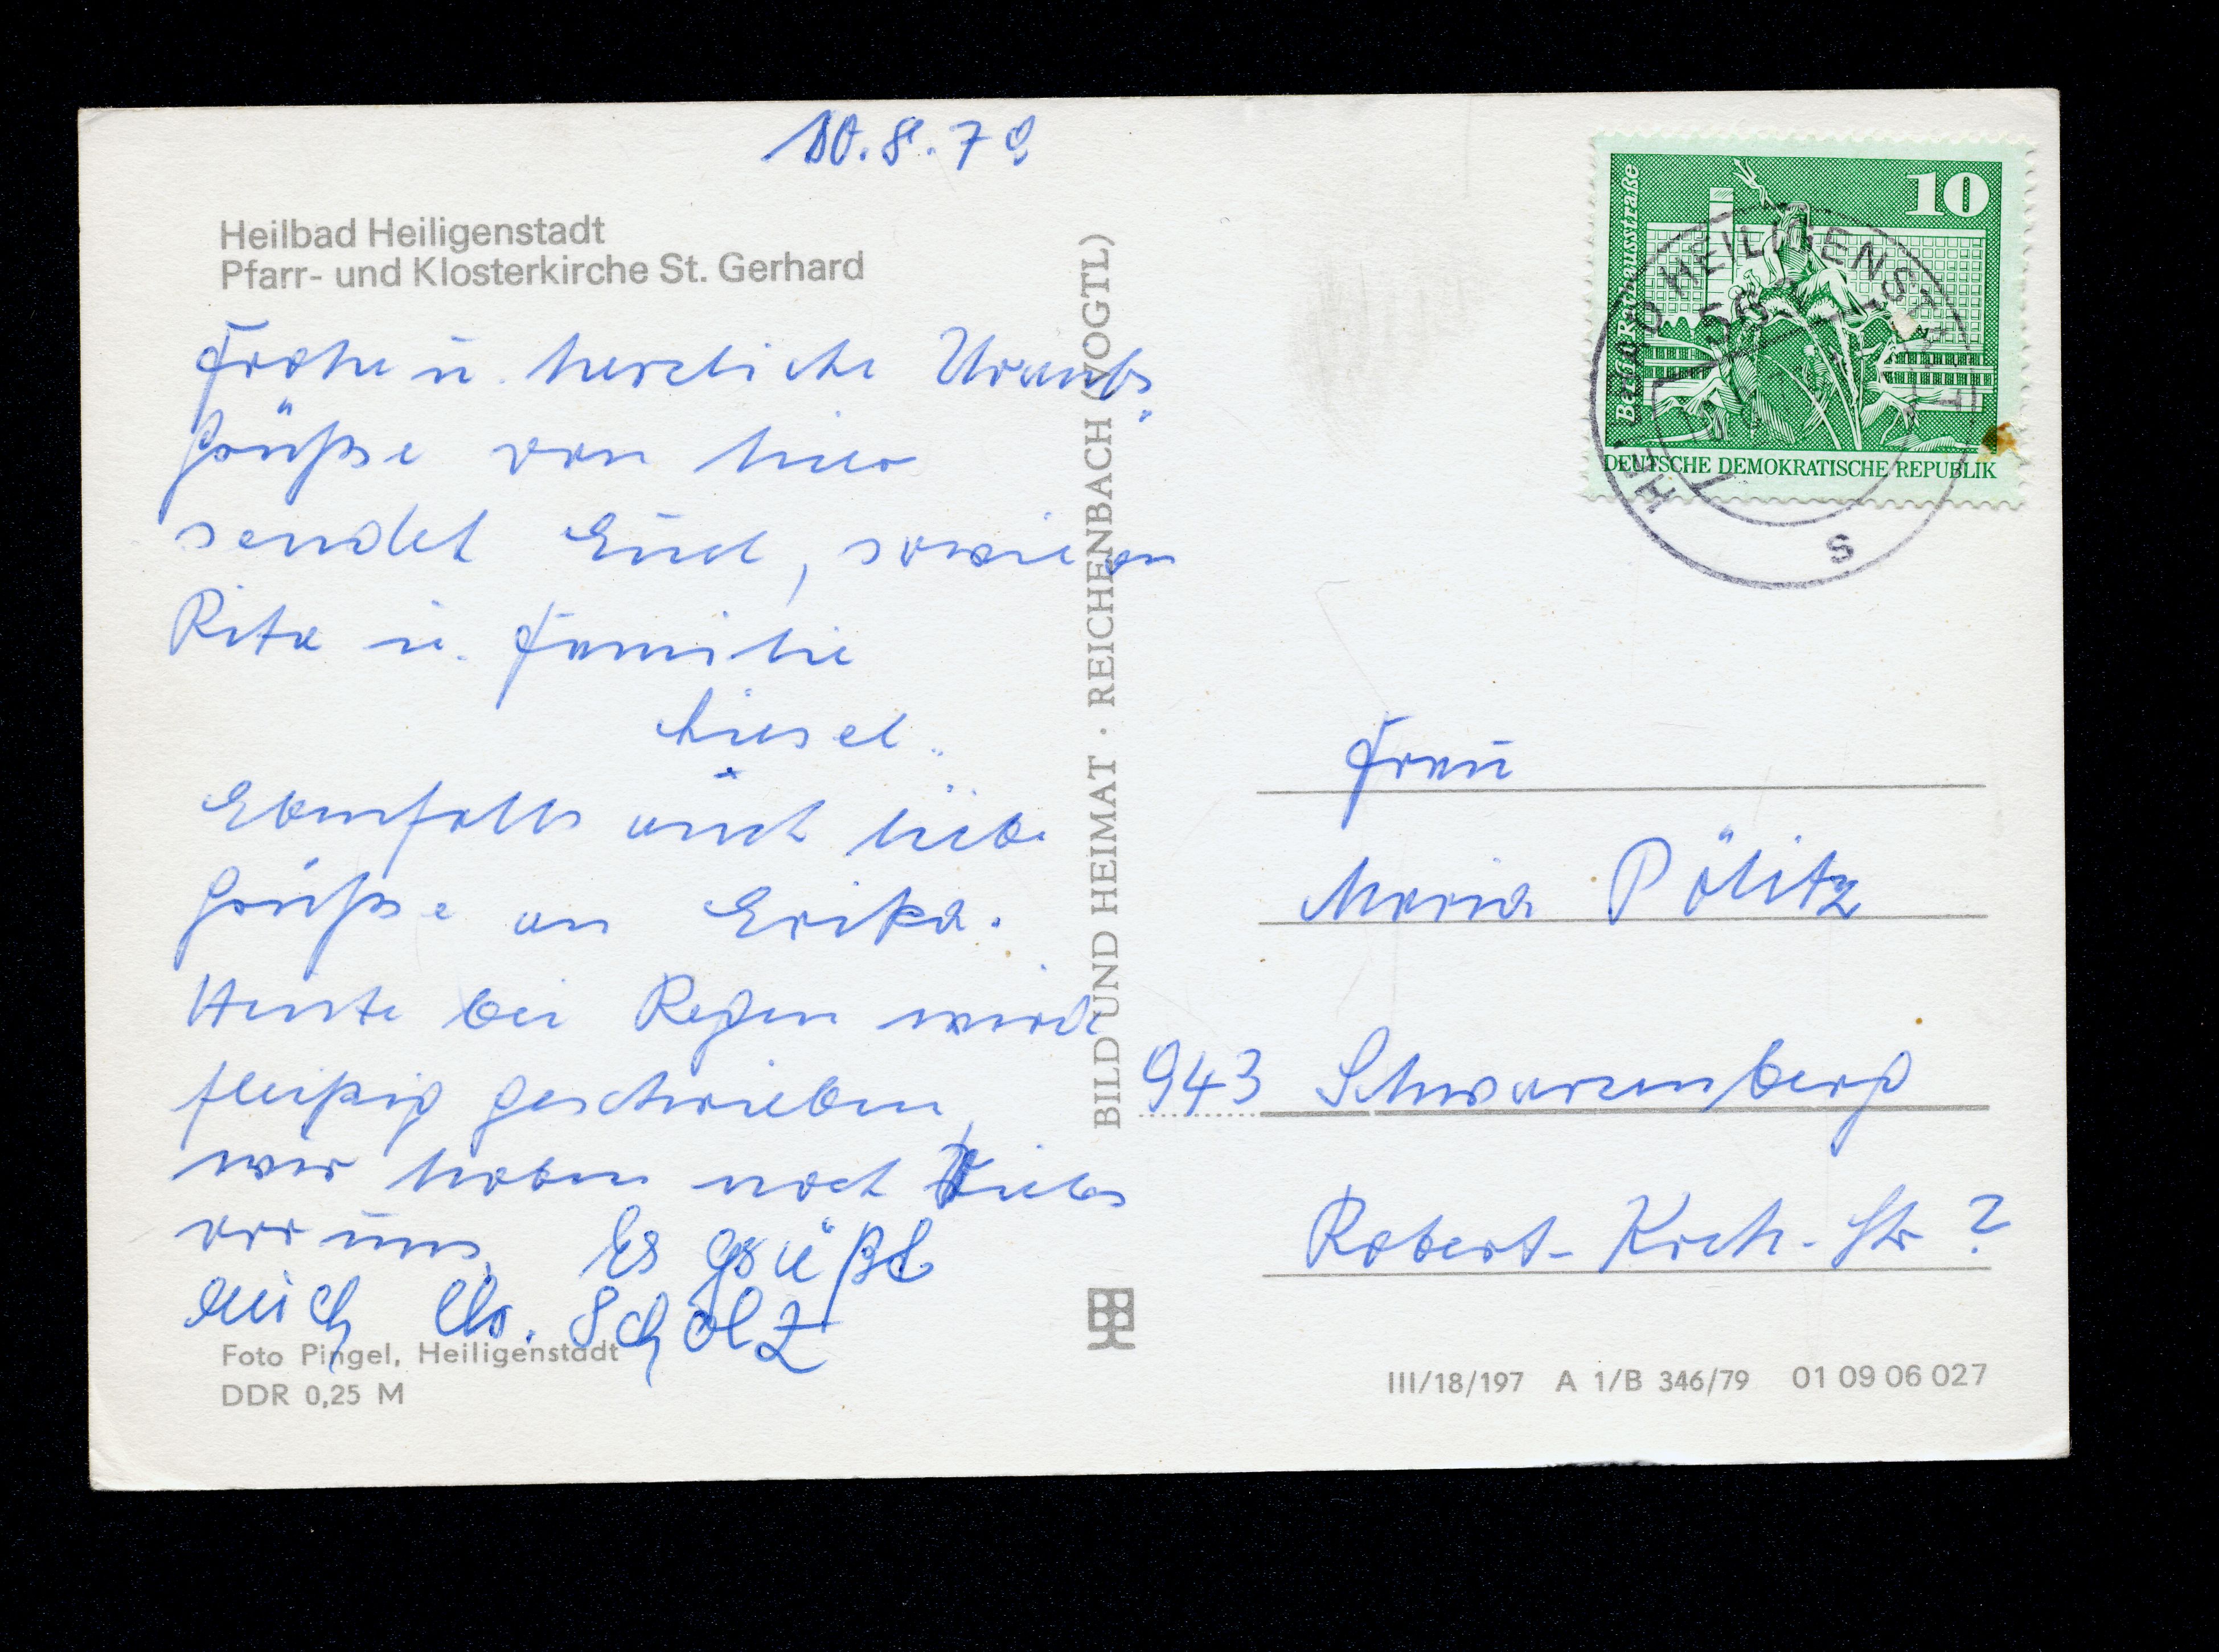 10.8.79
Heilbad Heiligenstadt
Pfarr- und Klosterkirche St. Gerhard
Frohe u. herzliche Uraubs
Grüße von hier
sendet Euch, sowie an
Rita u. Familie
Liesel.
Ebenfalls auch liebe
Grüße an Erika.
Heute bei Regen wird
fleißig geschrieben,
wir haben noch
vor uns. Es grüßt
euch Scholz
Foto Pingel, Heiligenstadt
DDR 0,25 M
BILD UND HEIMAT · REICHENBACH (VOGTL)
10
Berlin Rathausstraße
DEUTSCHE DEMOKRATISCHE REPUBLIK
HEILBAD HEILIGENSTADT
s
Frau
Maria Pölitz
943 Schwarzenberg
Robert-Koch-Str ?
III/18/197 A 1/B 346/79 01 09 06 027